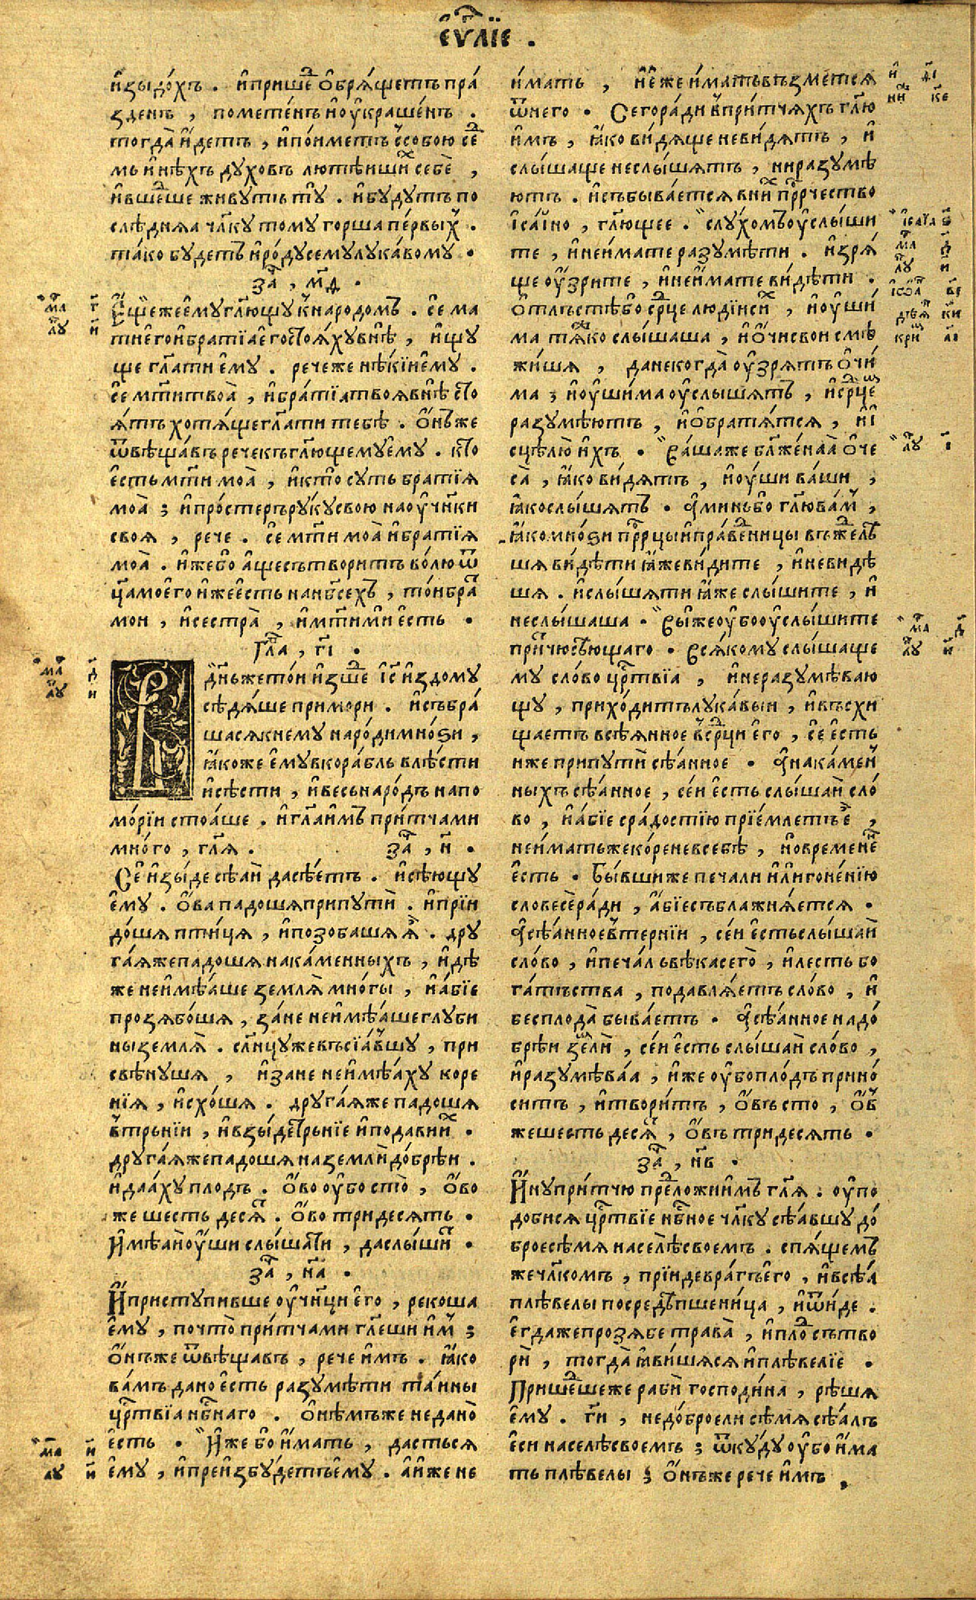 єѵ҃лїе .
и҆зыдо́хъ . и҆прише́д̾ ѻ҆брѧ́щетъ пра́
зденъ , пометенъ и҆оу҆кра́шенъ .
тогда̀ и҆детъ , и҆по́иметъ с̾собою се́д̾
мь и҆нѣхъ духовъ лютѣ́иши́х себѐ ,
и҆вше́дше живу́тъ ту̀ . и҆бу́дутъ по
слѣ́днѧѧ чл҃ку тому го́рша пе́рвыхъ .
та́ко бу́детъ и҆ро́ду сему лука́вому .
за҃ , м҃д .
Е҆ще́же е҆му гл҃ющу кнаро́домъ . се ма
ти е҆го и҆бра́тїа е҆го стоѧ́ху внѣ̀ , и҆щу
ще гл҃ати е҆му . рече́же нѣ́кіи е҆му .
се мт҃и твоа̀ , и҆бра́тїа твоѧ внѣ̀ сто
ѧ́тъ хотѧ́ще гл҃ати тебѣ̀ . ѻ҆нъже
ѿвѣща́въ рече къ гл҃ющему е҆му . кто
е҆сть мт҃и моа̀ , и҆кто суть бра́тїѧ
моа̀ ; и҆просте́ръ ру́ку свою на оу҆ч҃нки
своѧ , рече . се мт҃и моа̀ и҆бра́тїѧ
моа̀ . и҆же бо а҆ще сътвори́тъ во́лю ѿ
ц҃а моего и҆же е҆сть на нб҃сехъ , то́и бра́т
мои , и҆сестра̀ , и҆мт҃и ми е҆сть .
гл҃а , г҃і .
Въ дн҃ь же то́и и҆зше́д і҆с҃ и҆здому
сѣдѧ́ше примори . и҆събра́
шасѧ к нему наро́ди мно́ѕи ,
ꙗ҆коже е҆му вкора́бль влѣ́сти
и҆сѣсти , и҆весь наро́дъ на по
мо́рїи стоа́ше . и҆гл҃а и҆мъ при́тчами
мно́го , гл҃ѧ . за҃ , н҃ .
Се и҆зы́де сѣ́ѧи да сѣ́етъ . и҆сѣ́ющу
е҆му . ѻ҆ва падо́шѧ припути̂ . и҆прїи
до́шѧ пти́цѧ , и҆позоба́шѧ ѧ҆̀ . дру
га́ѧже падо́шѧ нака́менныхъ , и҆дѣ́
же неи҆мѣ́аше землѧ̀ мно́гы , и҆а҆бїе
прозѧбо́шѧ , за́не неи҆мѣ́аше глуби
ны землѧ̀ . сл҃нцу же въсїа́вшу , при
свѣнушѧ , и҆зане неи҆мѣ́аху коре
нїѧ , и҆схо́шѧ . друга́ѧже падо́шѧ
в̾трьнїи , и҆взы́де трьнїе и҆подави̂ их .
друга́ѧже падо́шѧ на земли̂ до́брѣи .
и҆дааху плодъ . ѻ҆во оу҆бо сто̀ , ѻ҆во
же шесть десѧ́т . ѻ҆во три́десѧть .
И҆мѣ́ѧи оу҆ши слы́шати , да слы́шит .
за҃ , н҃а .
И҆приступи́вше оу҆ч҃нци е҆го , рекоша
е҆му , почто̀ при́тчами гл҃еши и҆м ;
ѻ҆нъже ѿвѣща́въ , рече и҆мъ . ꙗ҆ко
ва́мъ дано̀ е҆сть разумѣ́ти та́ины
ц҃рствїа нб҃наго . ѻ҆нѣ́мже не дано̀
е҆сть . И҆же бо и҆мать , да́стьсѧ
е҆му , и҆преи҆збу́детъ е҆му . а҆и҆же не
и҆мать , и҆е҆же и҆мать възметсѧ
ѿнего . Сего ра́ди в̾при́тчѧхъ гл҃ю
и҆мъ , ꙗ҆ко ви́дѧще неви́дѧтъ , и҆
слы́шаще неслы́шѧтъ , ниразумѣ́
ютъ . и҆събыва́етсѧ в ни́х прⷪ҇рчество
і҆са́ино , гл҃ющее . слу́хомъ оу҆слы́ши
те , и҆неи҆мате разумѣ́ти . и҆зрѧ́
ще оу҆зрите , и҆неи҆мате ви́дѣти .
ѻ҆тлъстѣ́ бо ср҃це людїи си́х , и҆оу҆ши́
ма тѧ́жко слы́шаша , и҆ѻ҆чи свои смѣ
жи́шѧ , да некогда̀ оу҆зрѧтъ ѻ҆чи́
ма ; и҆оу҆ши́ма оу҆слы́шѧтъ , и҆ср҃цем
разумѣ́ютъ , и҆ѻ҆братѧ́тсѧ , и҆і
сцѣлю̀ и҆хъ . Ва́ша же бл҃же́наа ѻ҆че
са̀ , ꙗ҆ко ви́дѧтъ , и҆оу҆ши ва́ши ,
ꙗ҆ко слы́шѧтъ . А҆минь бо гл҃ю ва́м ,
ꙗ҆ко мно́ѕи прⷪ҇рцы и҆пра́ведницы въжелѣ
шѧ ви́дѣти ꙗ҆же ви́дите , и҆невидѣ́
шѧ . и҆слы́шати ꙗ҆же слы́шите , и҆
неслы́шаша . Вы́же оу҆бо оу҆слы́шите
при́тчю сѣ́ющаго . Всѧ́кому слы́шаще
му сло́во ц҃рствїа , и҆неразумѣва́ю
щу , прихо́дитъ лука́выи , и҆въсхи
ща́етъ всѣ́ѧнное в̾ср҃ци е҆го , се е҆сть
иже припути̂ сѣ́ѧнное . А҆ на ка́мен
ныхъ сѣ́ѧнное , се́и е҆сть слы́шаи сло́
во , и҆а҆бїе срадостїю прїе́млетъ е҆̀ ,
неи҆мать же ко́рене в себѣ̀ , но вре́мененъ
е҆сть . Бы́вши же печали и҆ли гоне́нїю
словесѐ ра́ди , а҆бїе съблажнѧ́етсѧ .
А҆сѣ́ѧнное в̾те́рнїи , се́и е҆сть слы́шаи
сло́во , и҆печа́ль вѣ́ка сего̀ , и҆ле́сть бо
га́тьства , подавлѧ́етъ сло́во , и҆
бесплода̀ быва́етъ . А҆сѣ́ѧнное на до́
брѣи земли̂ , се́и е҆сть слы́шаи сло́во ,
и҆разумѣва́ѧ , и҆же оу҆бо плодъ прино́
ситъ , и҆твори́тъ , ѻ҆въ сто , ѻ҆в
же шесть десѧ́т , ѻ҆въ три́десѧть .
за҃ , н҃в .
И҆ну при́тчю предложи̂ и҆мъ гл҃ѧ . оу҆по
до́бисѧ ц҃рствїе нб҃ное чл҃ку сѣ́авшу до́
брое сѣ́мѧ на селѣ̀ своемъ . спѧ́щем
же чл҃комъ , прїи́де вра́гъ е҆го , и҆всѣ́ѧ
плѣ́велы посредѣ̀ пшени́ца , и҆ѿи́де .
е҆гда́же прозѧбе трава̀ , и҆пло́д сътво
рѝ , тогда̀ ꙗ҆ви́шѧсѧ и҆плѣ́велїе .
Прише́дшеже раби̂ господи́на , рѣ́шѧ
е҆му . г҃и , не до́брое ли сѣ́мѧ сѣ́ѧлъ
е҆си на селѣ̀ своемъ ; ѿку́ду оу҆бо и҆ма
ть плѣ́велы ; ѻ҆нъже рече и҆мъ ,